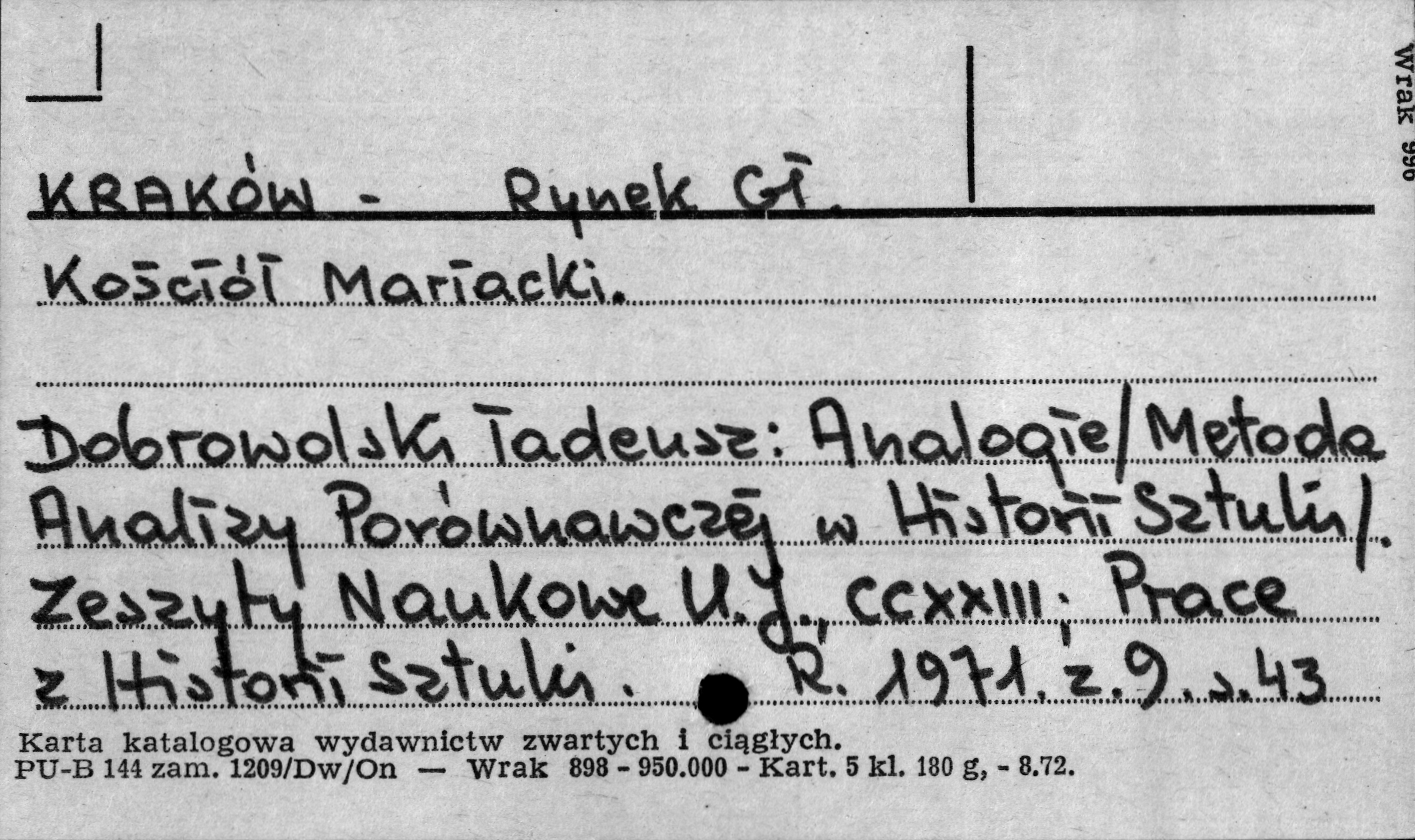 Wrak 996
KRAKÓW - Rynek Gł.
Kościół Mariacki.
Dobrowolski Tadeusz: Analogie/Metoda
Analizy Porównawczej w Historii Sztuki/.
Zeszyty Naukowe U.J., CCXXIII; Prace
z Historii Sztuki. R. 1971. z. 9. s. 43
Karta katalogowa wydawnictw zwartych i ciągłych.
PU-B 144 zam. 1209/Dw/On — Wrak 898 - 950.000 - Kart. 5 kl. 180 g, - 8.72.